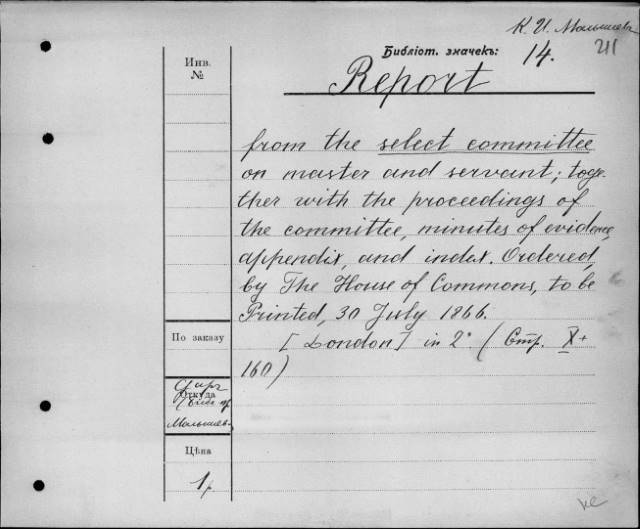 К. И. Малышев
211
Библіот. значекъ: 14.
Инв.
№
Report
from the select committee
on master and servant; toge-
ther with the proceedings of
the committee, minutes of evidence,
appendix, and index. Ordered,
by The House of Commons, to be
Printed, 30 July 1866.
По заказу
[London] in 2° (Стр. X+
160)
Откуда
Малышев
Цѣна
1р.